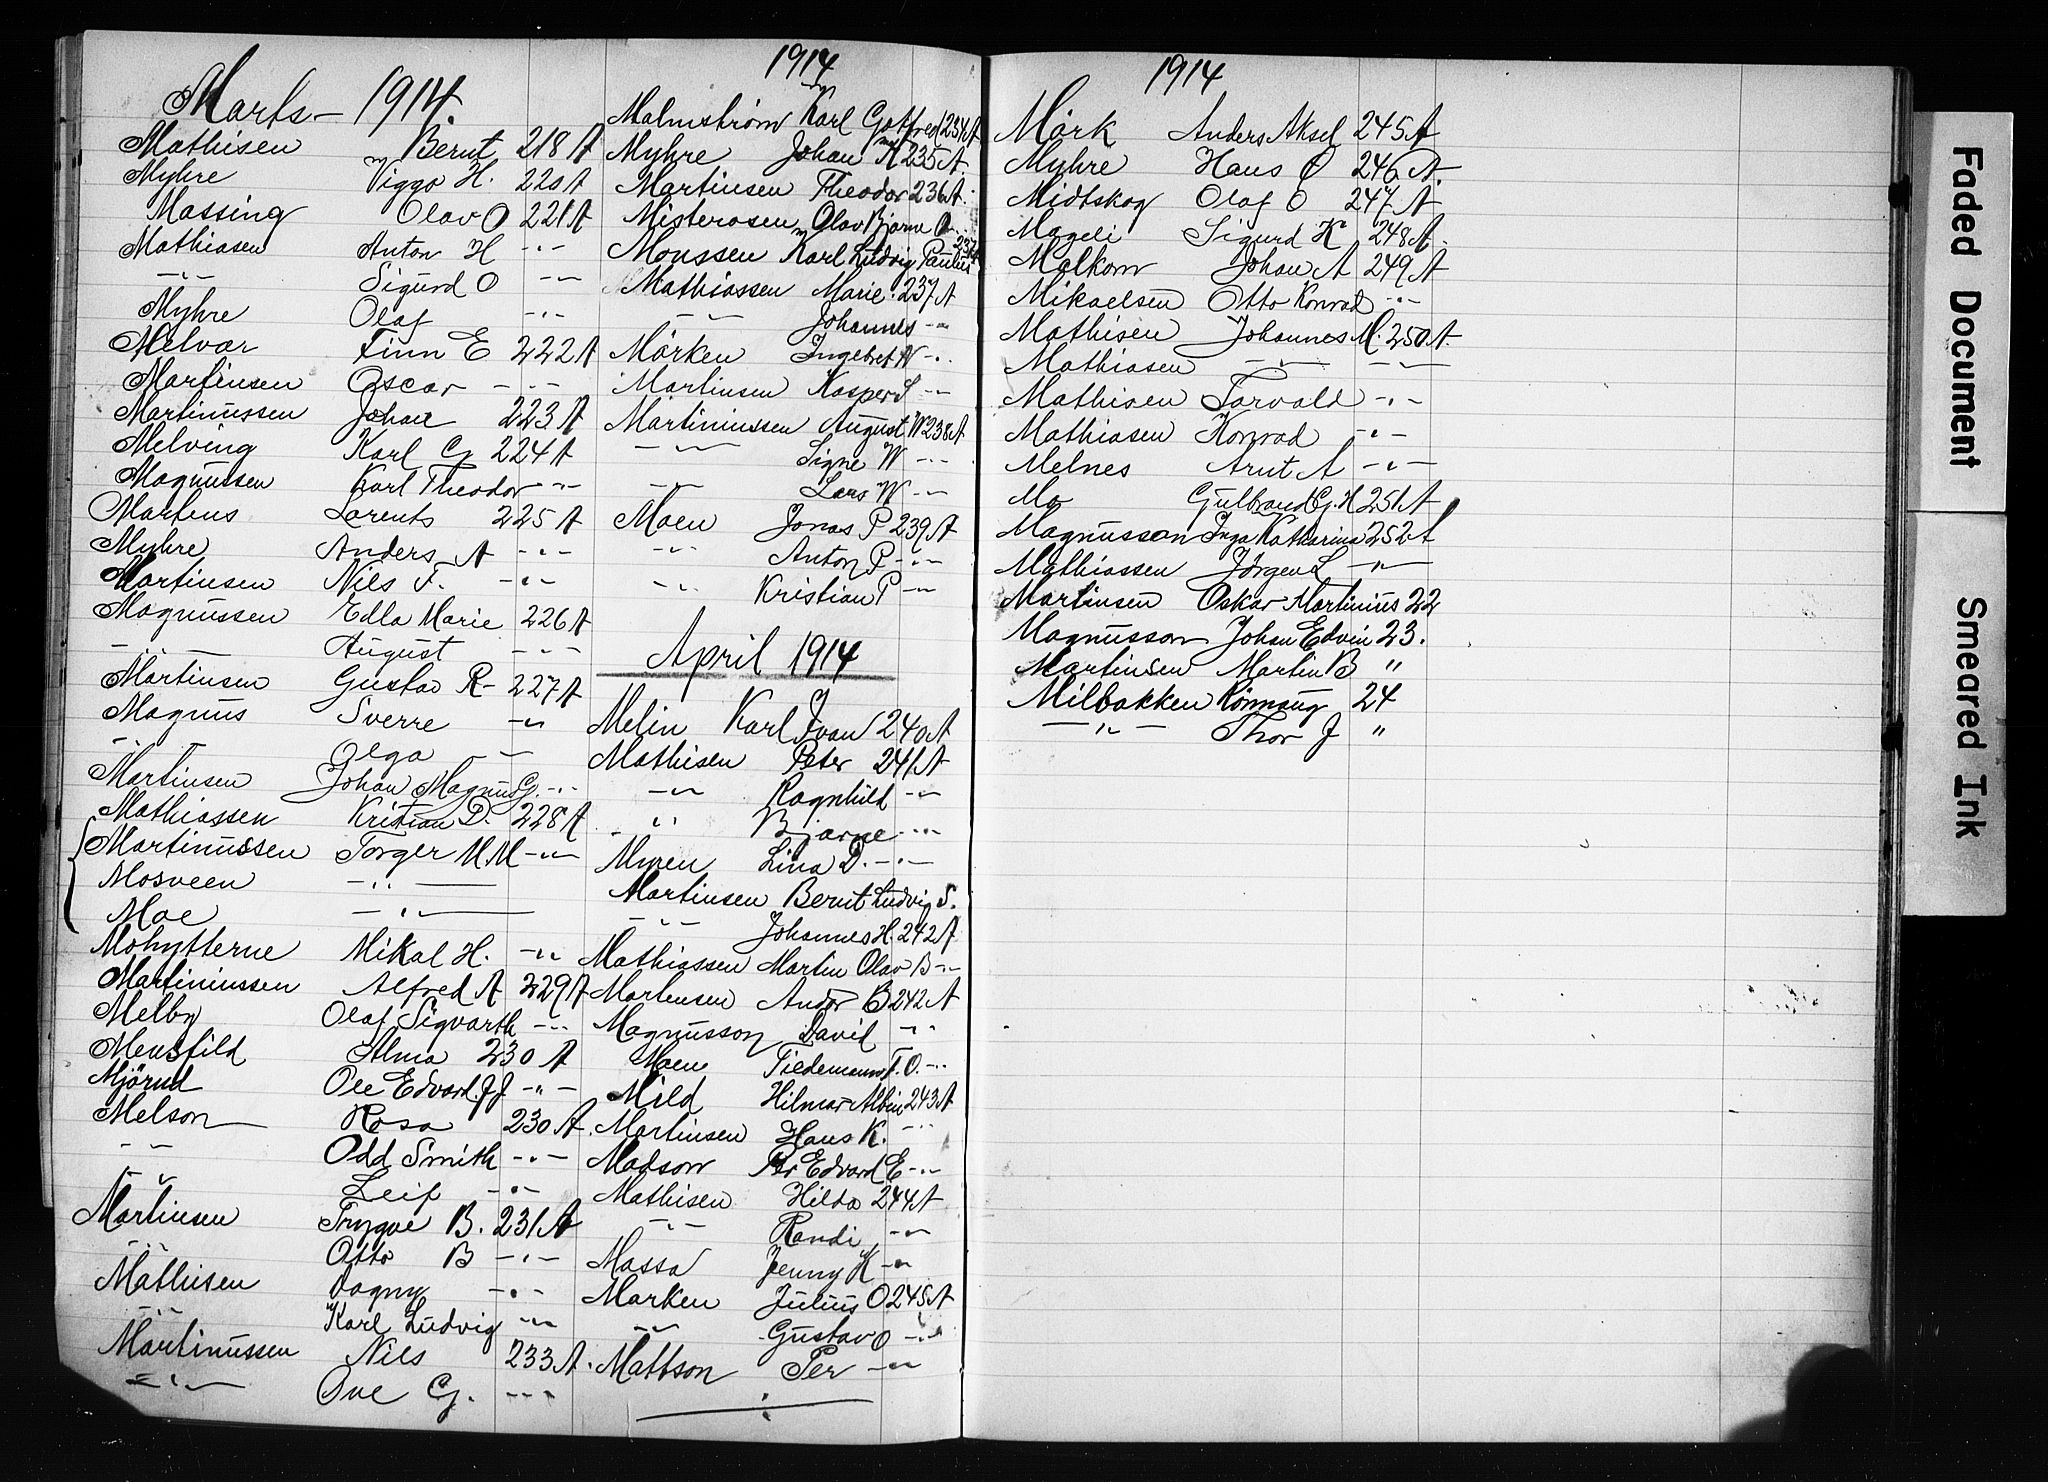 Marts – 1914.
Mathisen Bernt 218 A
Myhre Viggo H. 220 A
Massing Olav O 221 A
Mathiasen Anton H -"-
-"- Sigurd O -"-
Myhre Olaf -"-
Melvar Finn E 222 A
Martinsen Oscar -"-
Martinussen Johan 223 A
Melving Karl G 224 A
Magnussen Karl Theodor -"-
Martens Lorents 225 A
Myhre Anders A -"-
Martinsen Nils F. -"-
Magnussen Edla Marie 226 A
-"- August -"-
Martinsen Gustav R- 227 A
Magnus Sverre -"-
-"- Olga -"-
Martinsen Johan Magnus G. -"-
Mathiassen Kristian D. 228 A
Martinussen Torger M M -"-
Mosveen -"-
Moe -"-
Mohytterne Mikal H. -"-
Martiniussen Alfred A 229 A
Melby Olaf Sigvarth -"-
Mensfild Alma 230 A
Mjörud Ole Edvard J J -"-
Melson Rosa 230 A.
-"- Odd Smith -"-
-"- Leif -"-
Martinsen Trygve B. 231 A
-"- Otto B -"-
Mathisen Dagny -"-
-"- Karl Ludvig -"-
Martinussen Nils 233 A.
-"- Ove G. -"-
1914
Malmström Karl Gotfred 234 A
Myhre Johan A 235 A.
Martinsen Theodor 236 A.
Misterosen Olav Bjarne O.
Monssen Karl Ludvig Paulus 237 A
Mathiassen Marie 237 A
-"- Johannes -"-
Mörken Ingebret N -"-
Martinsen Kasper S -"-
Martiniussen August W 238 A
-"- Signe W -"-
-"- Lars W -"-
Moen Jonas P 239 A
-"- Anton P -"-
-"- Kristian P -"-
April 1914
Melin Karl Ivan 240 A
Mathisen Peter 241 A
-"- Ragnhild -"-
-"- Bjarne -"-
Myren Lina D. -"-
Martinsen Bernt Ludvig S.
-"- Johannes H. 242 A
Mathiassen Martin Olav B -"-
Mortensen Andor B 242 A
Magnusson David -"-
Moen Tiedemann T. O. -"-
Mild Hilmar Albin 243 A
Martinsen Hans K. -"-
Madson Per Edvard E -"-
Mathisen Hilda 244 A
-"- Randi -"-
Massa Jenny K -"-
Marken Julius O 245 A
-"- Gustav O -"-
Mattson Per -"-
1914
Mörk Anders Aksel 245 A
Myhre Hans O 246 A.
Midtskog Olaf O 247 A
Mageli Sigurd K 248 A.
Malkom Johan A 249 A
Mikaelsen Otto Konrad -"-
Mathisen Johannes M. 250 A.
Mathiasen -"- -"-
Mathisen Torvald -"-
Mathiasen Konrad -"-
Melnes Arnt A -"-
Mo Gulbrand G. H 251 A
Magnusson Inga Katharina 252 A
Mathiassen Jörgen L -"-
Martinsen Oskar Martinius 22
Magnusson Johan Edvin 23.
Martinsen Martin B "
Milbakken Rönnaug 24
-"- Thor J "
Faded Document
Smeared Ink